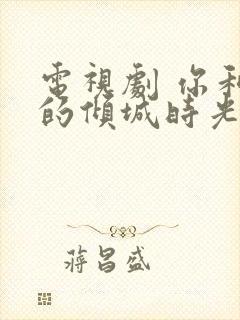 電視劇 你和
的傾城時光
蔣昌盛